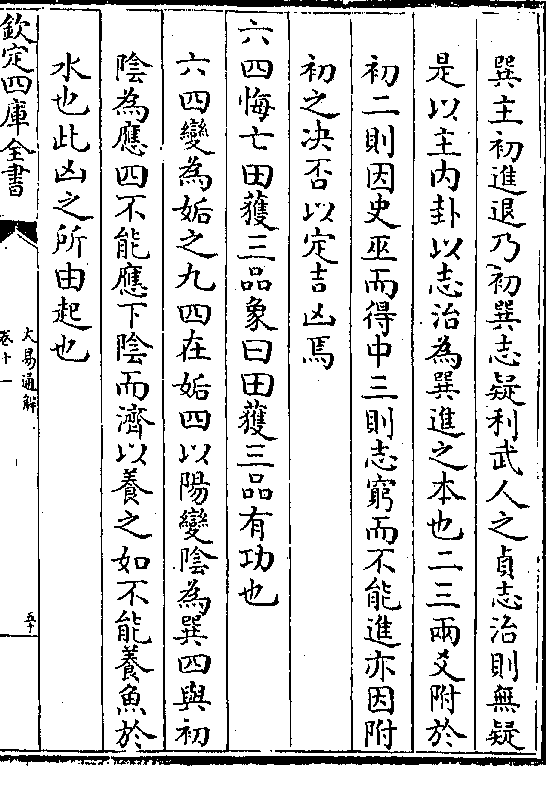 巽主初進退乃初巽志疑利武人之貞志治則無疑
是以主内卦以志治為巽進之本也二三兩爻附於
初二則因史巫而得中三則志窮而不能進亦因附
初之决否以定吉凶焉
六四悔亡田獲三品象曰田獲三品有功也
六四變為姤之九四在姤四以陽變陰為巽四與初
陰為應四不能應下陰而濟以養之如不能養魚於
水也此凶之所由起也
欽定四庫全書
大易通解
卷十一